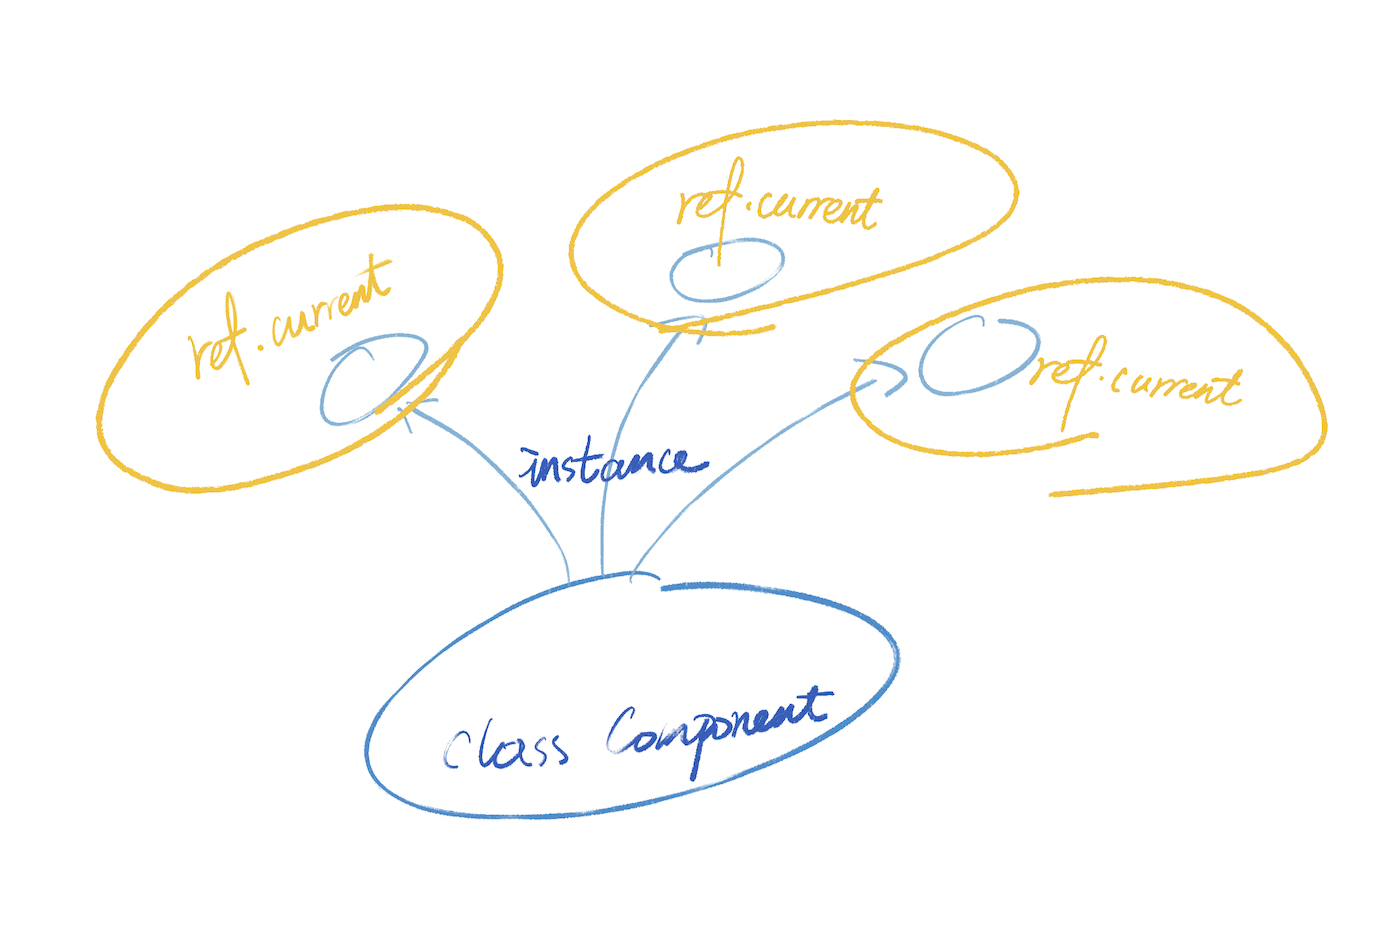 ref.current
ref.current
ref.current
instance
class Component